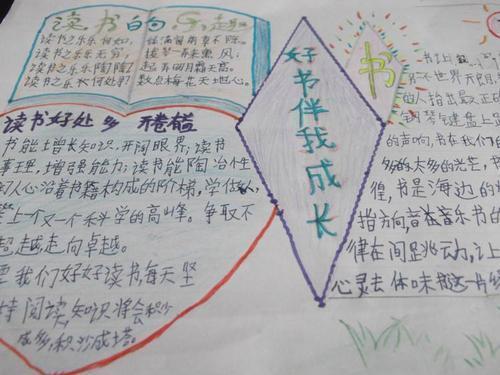 读书白勺乐趣
读书之乐乐何如,
读书之乐乐无穷,
读书之乐乐陶陶
读书之乐何处寻?
绿满窗前草不除。
拨琴一弄来熏风;
起弄明月霜天高。
数点梅花天地心。
读书好处多 开卷有益
书能增长知识,开阔眼界;读书
事理,增强能力;读书能陶冶性
们人心沿着书籍构成的阶梯,学做人,
登上一个又一个科学的高峰。争取不
超越走向卓越。
要我们好好读书,每天坚
持阅读,知识将会积少
成多,积沙成塔。
好书伴我成长
书
书上
世界无
的人指出最正
钢琴键盘上
的声响,书在我们
多的太多的光芒,书
徨,书是海边的
指方向,音在音乐书的
律在间跳动,让上
心灵去体味那这一片